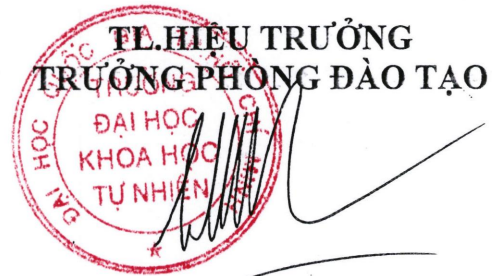 TL.HIỆU TRƯỞNG
TRƯỞNG PHÒNG ĐÀO TẠO
ĐẠI HỌC QUỐC
TRƯỜNG
ĐẠI HỌC
KHOA HỌC
TỰ NHIÊN